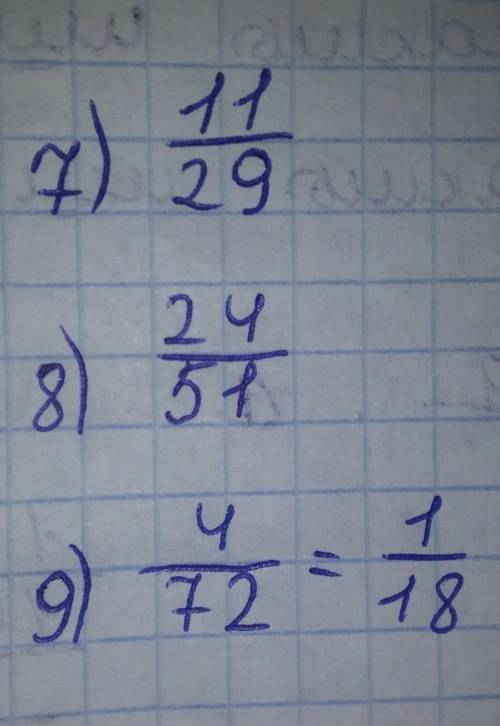 7) 11/29
8) 24/51
9) 4/72 = 1/18